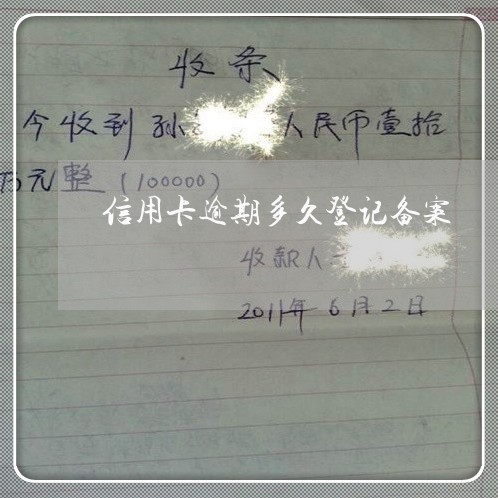 收条
今收到孙 人民币壹拾
万元整(100000)
信用卡逾期多久登记备案
收款人
2011年6月2日